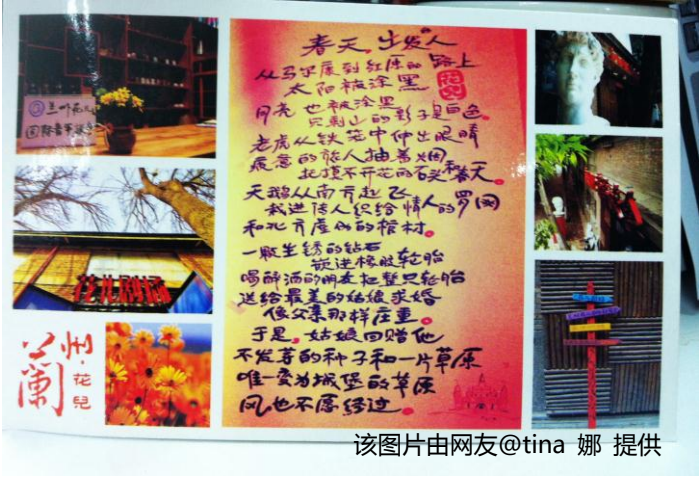 春天，出发人
从马尔康到红原的路上
太阳被涂黑
月亮也被涂黑
只剩山的影子是白色。
老虎从铁笼中伸出眼睛
疲惫的旅人抽着烟
抚摸不开花的石头和春天。
天鹅从南方起飞
栽进情人织给情人的罗网
和北方度似的棺材。
一颗生锈的钻石
嵌进橡胶轮胎
喝醉酒的朋友把整只轮胎
送给最美的姑娘求婚
像父亲那样庄重。
于是，姑娘回赠他
不发芽的种子和一片草原
唯一变为城堡的草原
风也不愿经过。
兰·花兒
蘭
该图片由网友@tina 娜 提供